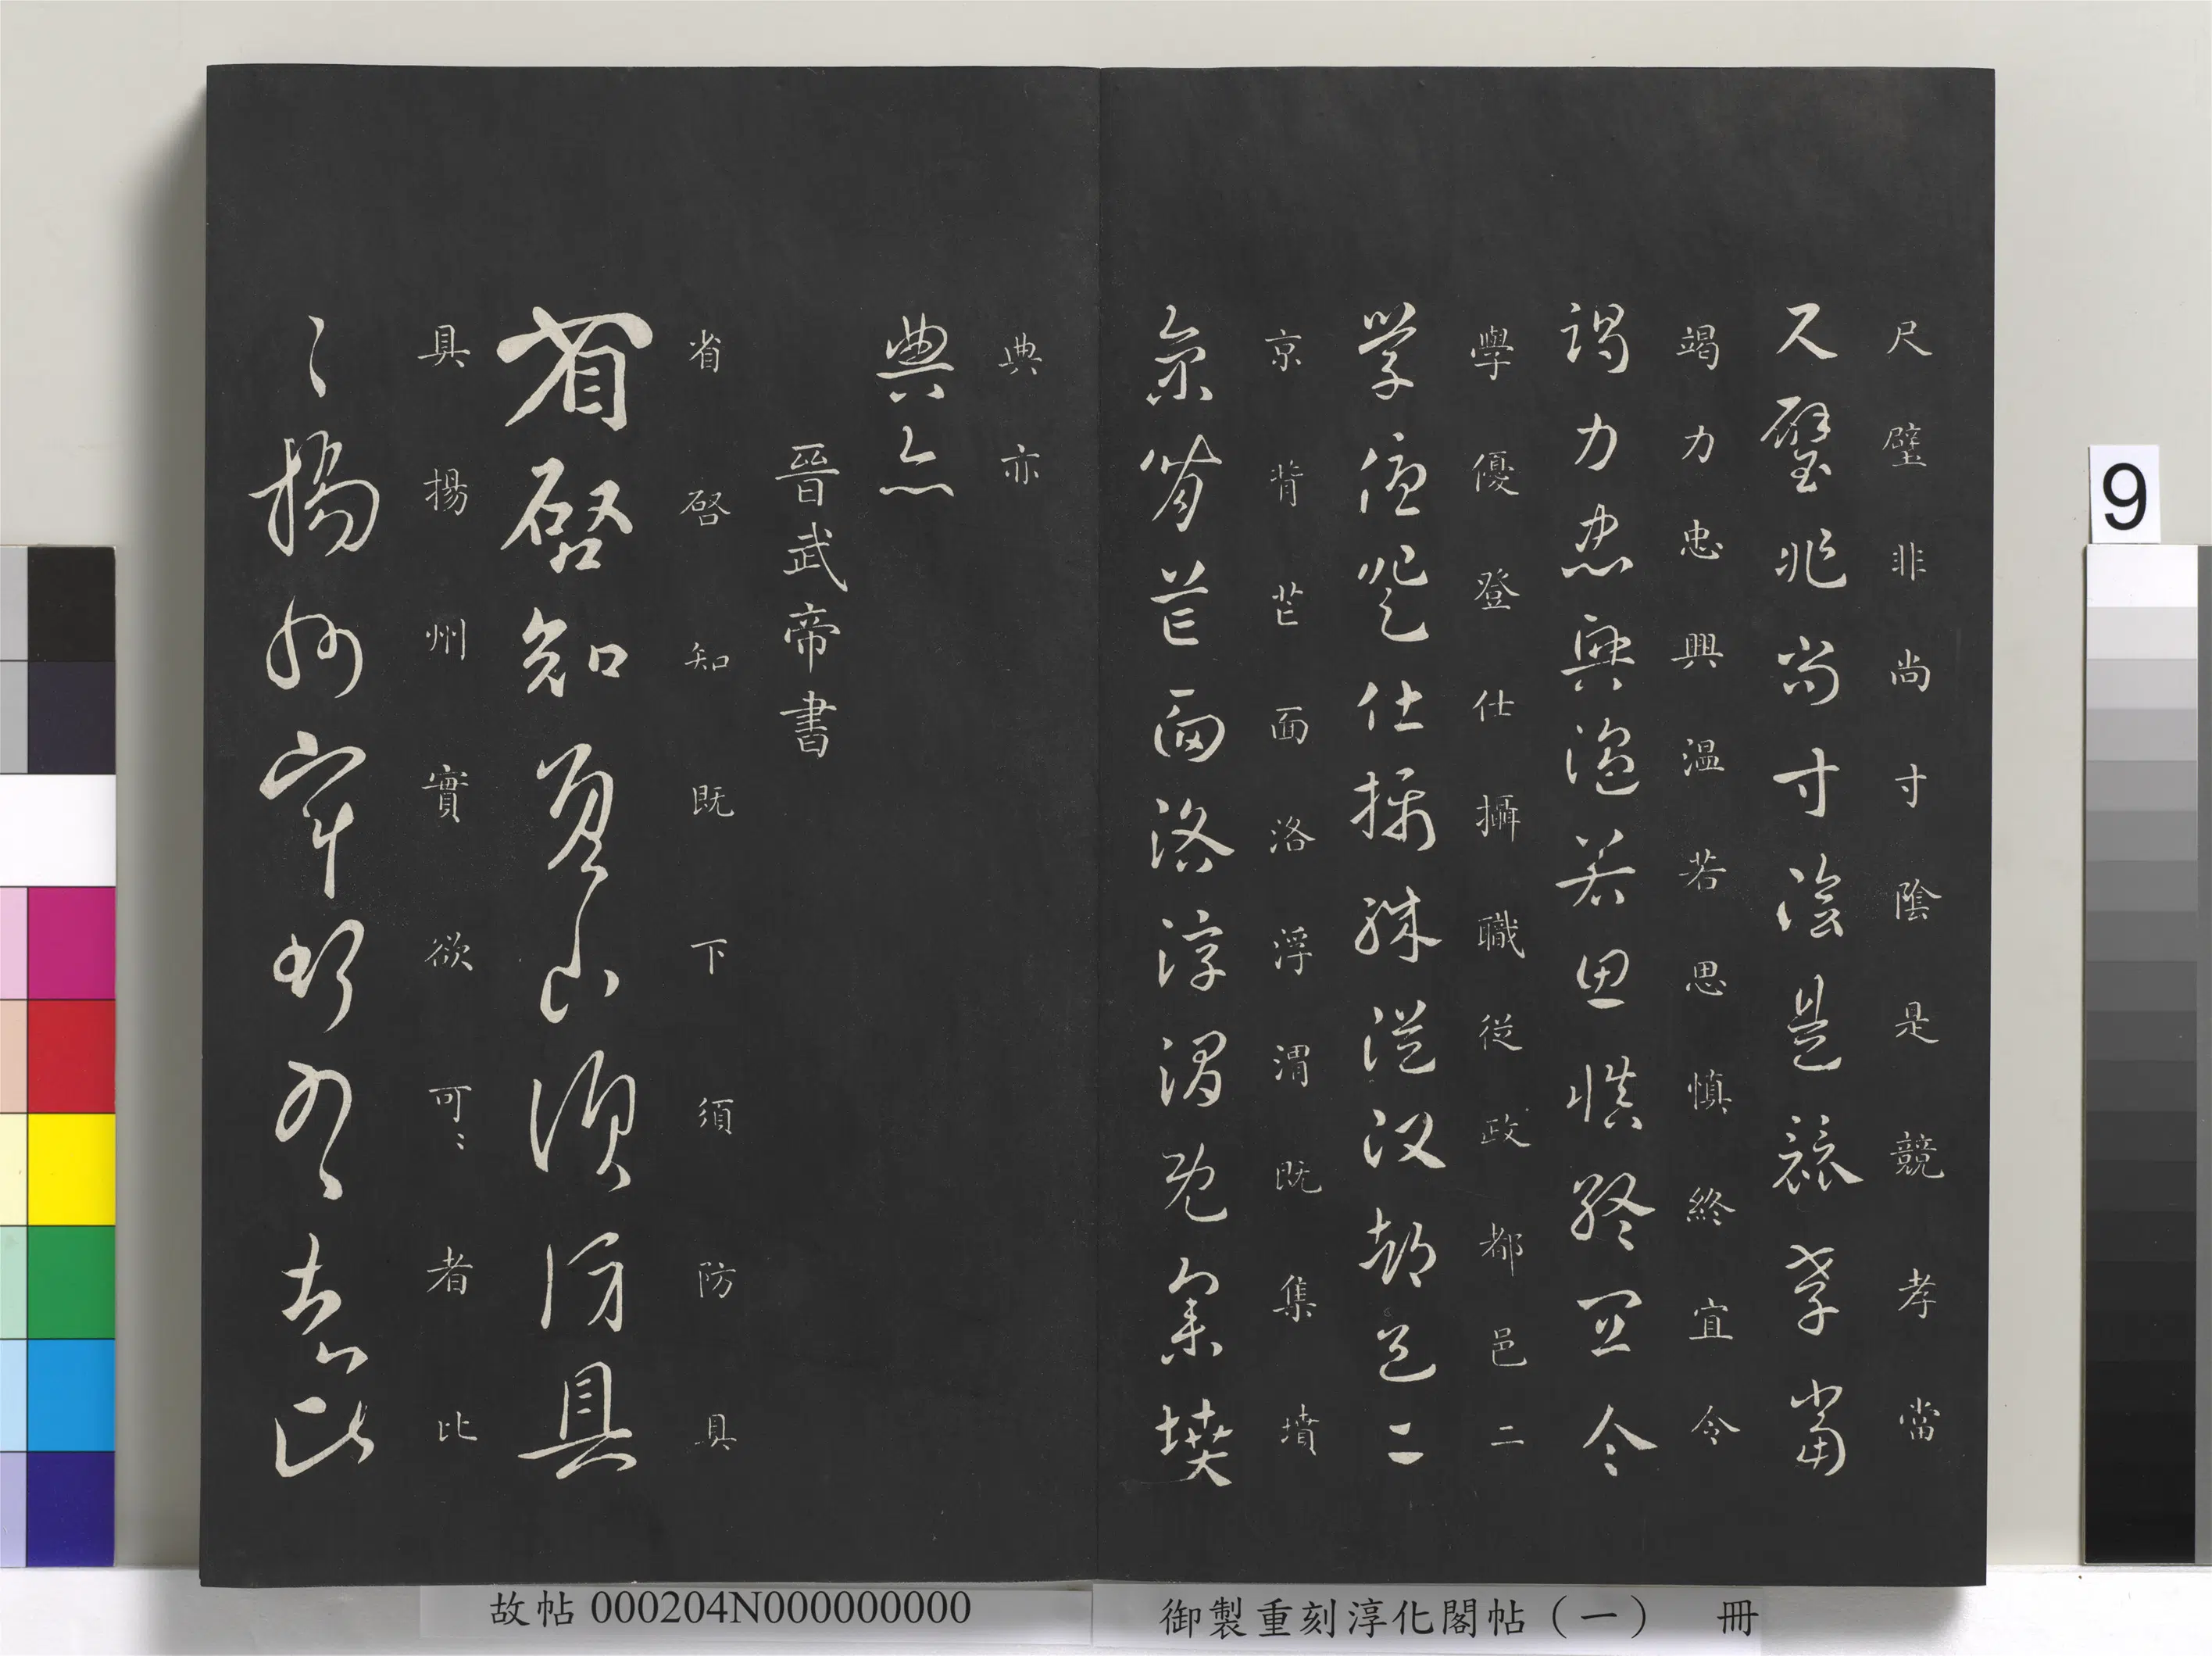 尺璧非尚寸陰是競孝當
尺璧非尚寸陰是競孝當
竭力忠興溫若思慎終宜令
竭力忠興溫若思慎終宜令
學優登仕攝職從政都邑二
學優登仕攝職從政都邑二
京背芒面洛浮渭既集墳
京背芒面洛浮渭既集墳
典亦
典亦
晉武帝書
省啓知既下須防具
省啓知既下須防具
具揚州實欲可〻者比
〻揚州實欲可〻者比
9
故帖 000204N000000000
御製重刻淳化閣帖（一） 冊